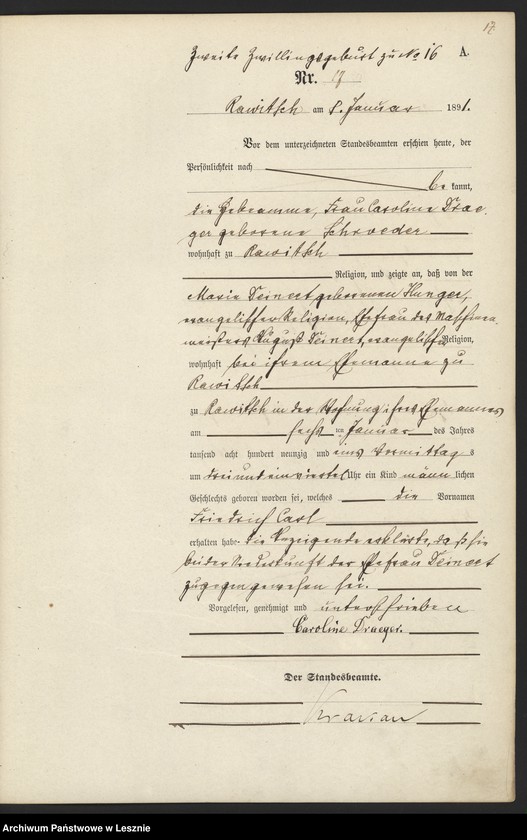 17
Zweite Zwillingsgeburt zu No 16 A.
Nr. 17
Rawitsch am 8. Januar 1891.
Vor dem unterzeichneten Standesbeamten erschien heute, der
Persönlichkeit nach
be kannt,
die Hebeamme, Frau Caroline Drae,
ger geborene Schroeder
wohnhaft zu Rawitsch
Religion, und zeigte an, daß von der
Marie Deinert geborenen Hunger,
evangelischer Religion, Ehefrau des Maschinen,
meisters August Deinert, evangelischer Religion,
wohnhaft bei ihrem Ehemanne zu
Rawitsch
zu Rawitsch in der Wohnung ihres Ehemannes
am sechsten Januar des Jahres
tausend acht hundert neunzig und eins Vormittag s
um drei und ein viertel Uhr ein Kind männ lichen
Geschlechts geboren worden sei, welches die Vornamen
Friedrich Carl
erhalten habe. Die Anzeigende erklärte, daß sie
bei der Niederkunft der Ehefrau Deinert
zugegen gewesen sei.
Vorgelesen, genehmigt und unterschrieben
Caroline Draeger.
Der Standesbeamte.
Archiwum Państwowe w Lesznie